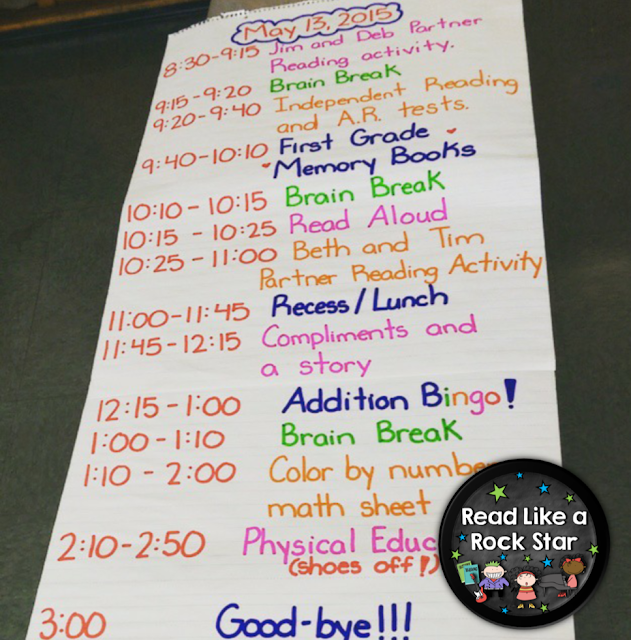 May 13, 2015
8:30-9:15 Jim and Deb Partner
Reading activity.
9:15-9:20 Brain Break
9:20-9:40 Independent Reading
and A.R. tests.
9:40-10:10 First Grade
Memory Books
10:10-10:15 Brain Break
10:15-10:25 Read Aloud
10:25-11:00 Beth and Tim
Partner Reading Activity
11:00-11:45 Recess/Lunch
11:45-12:15 Compliments and
a story
12:15-1:00 Addition Bingo!
1:00-1:10 Brain Break
1:10-2:00 Color by numbe
math sheet
2:10-2:50 Physical Educ
(shoes off!)
3:00 Good-bye!!!
Read Like a
Rock Star